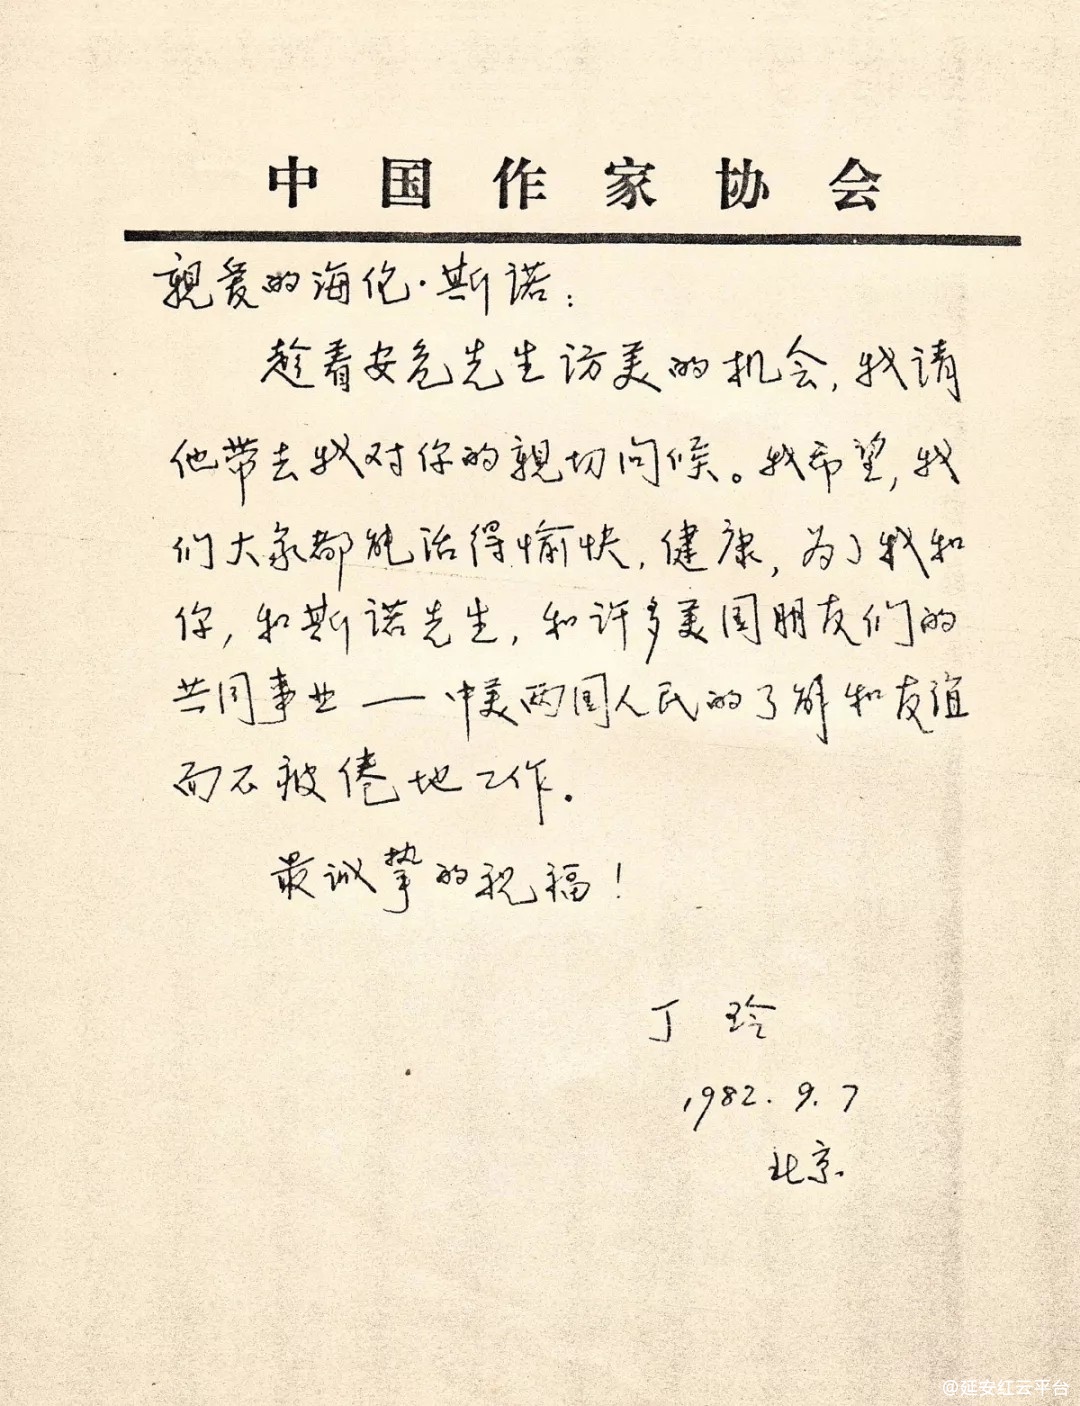 中国作家协会
親爱的海伦·斯诺：
趁着安危先生访美的机会，我请
他带去我对你的親切问候。我希望，我
们大家都能活得愉快，健康，为了我和
你，和斯诺先生，和许多美国朋友们的
共同事业——中美两国人民的了解和友谊
而不疲倦地工作。
最诚挚的祝福！
丁玲
1982.9.7
北京.
@延安红云平台